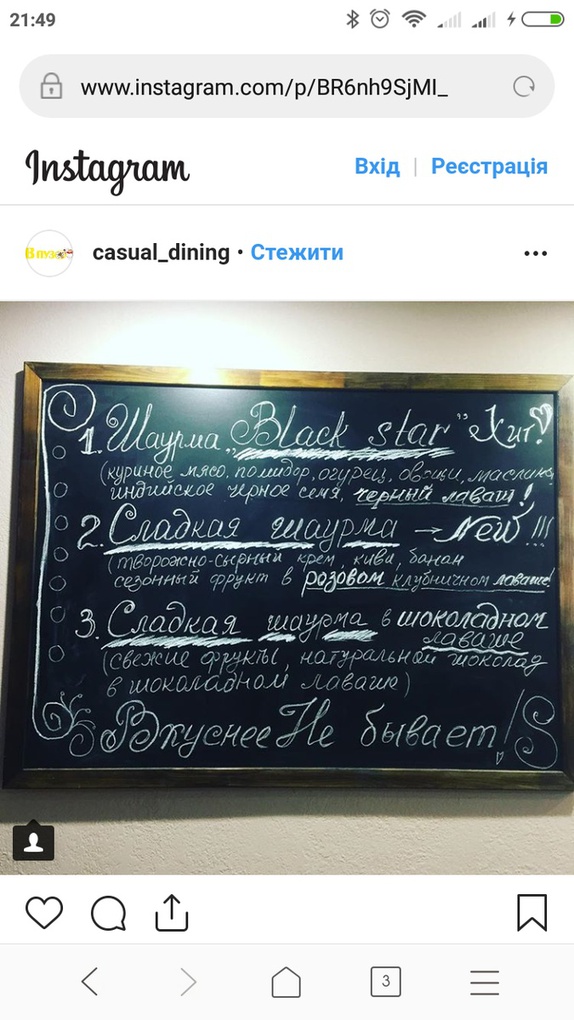 21:49
www.instagram.com/p/BR6nh9SjMI_
Instagram
Вхід | Реєстрація
casual_dining • Стежити
1. Шаурма „Black star" Хит!
(куриное мясо, помидор, огурец, овощи, маслины
индийское чёрное семя, черный лаваш!
2. Сладкая шаурма → New!!!
(творожно-сырный крем, киви, банан
сезонный фрукт в розовом клубничном лаваше!
3. Сладкая шаурма в шоколадном
лаваше
(свежие фрукты, натуральной шоколад
в шоколадном лаваше)
Вкуснее Не бывает!
3